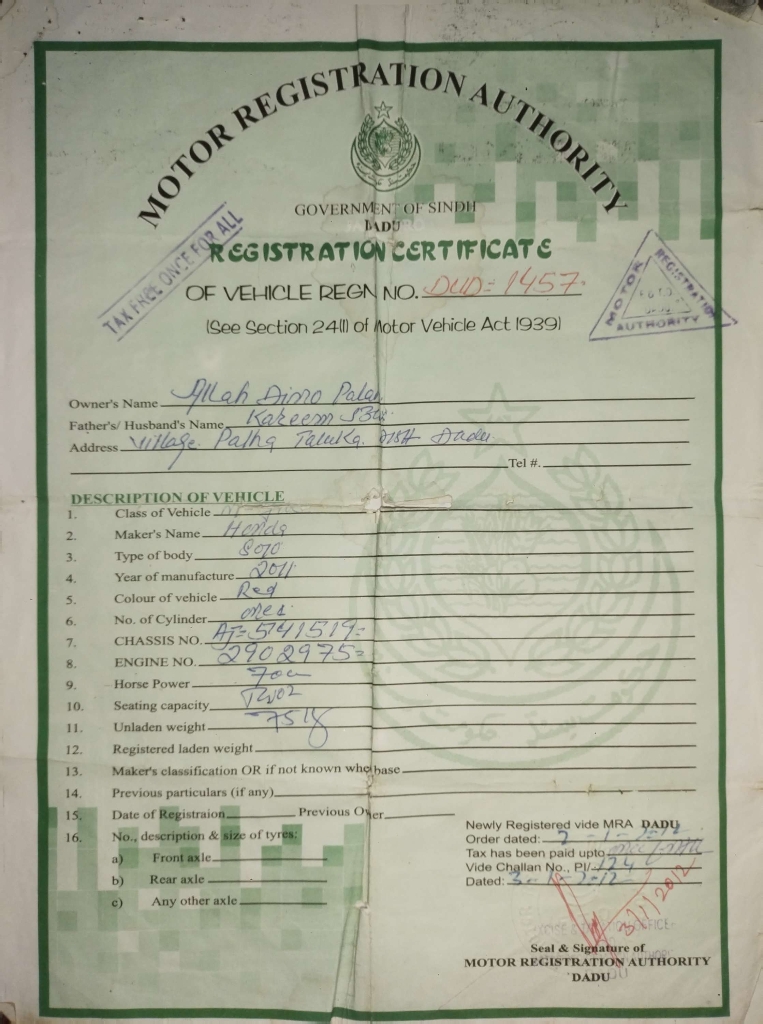 MOTOR REGISTRATION AUTHORITY
GOVERNMENT OF SINDH
DADU
REGISTRATION CERTIFICATE
TAX FREE ONCE FOR ALL
OF VEHICLE REGN NO. DUD=1457
MOTOR REGISTRATION AUTHORITY
(See Section 24(I) of Motor Vehicle Act 1939)
Owner's Name Allah Dino
Father's/ Husband's Name Kareem Bux
Address Village Taluka Distt Dadu
Tel #.
DESCRIPTION OF VEHICLE
1. Class of Vehicle
2. Maker's Name Honda
3. Type of body Solo
4. Year of manufacture 2011
5. Colour of vehicle Red
6. No. of Cylinder one
7. CHASSIS NO. AF=541519=
8. ENGINE NO. 2902975=
9. Horse Power 70cc
10. Seating capacity Two
11. Unladen weight 75
12. Registered laden weight
13. Maker's classification OR if not known whe base
14. Previous particulars (if any)
15. Date of Registraion Previous Ow er
16. No., description & size of tyres:
a) Front axle
b) Rear axle
c) Any other axle
Newly Registered vide MRA DADU
Order dated:
Tax has been paid upto
Vide Challan No., Pl/- 124
Dated: 3-1-2-12
3/1/2012
Seal & Signature of
MOTOR REGISTRATION AUTHORITY
DADU